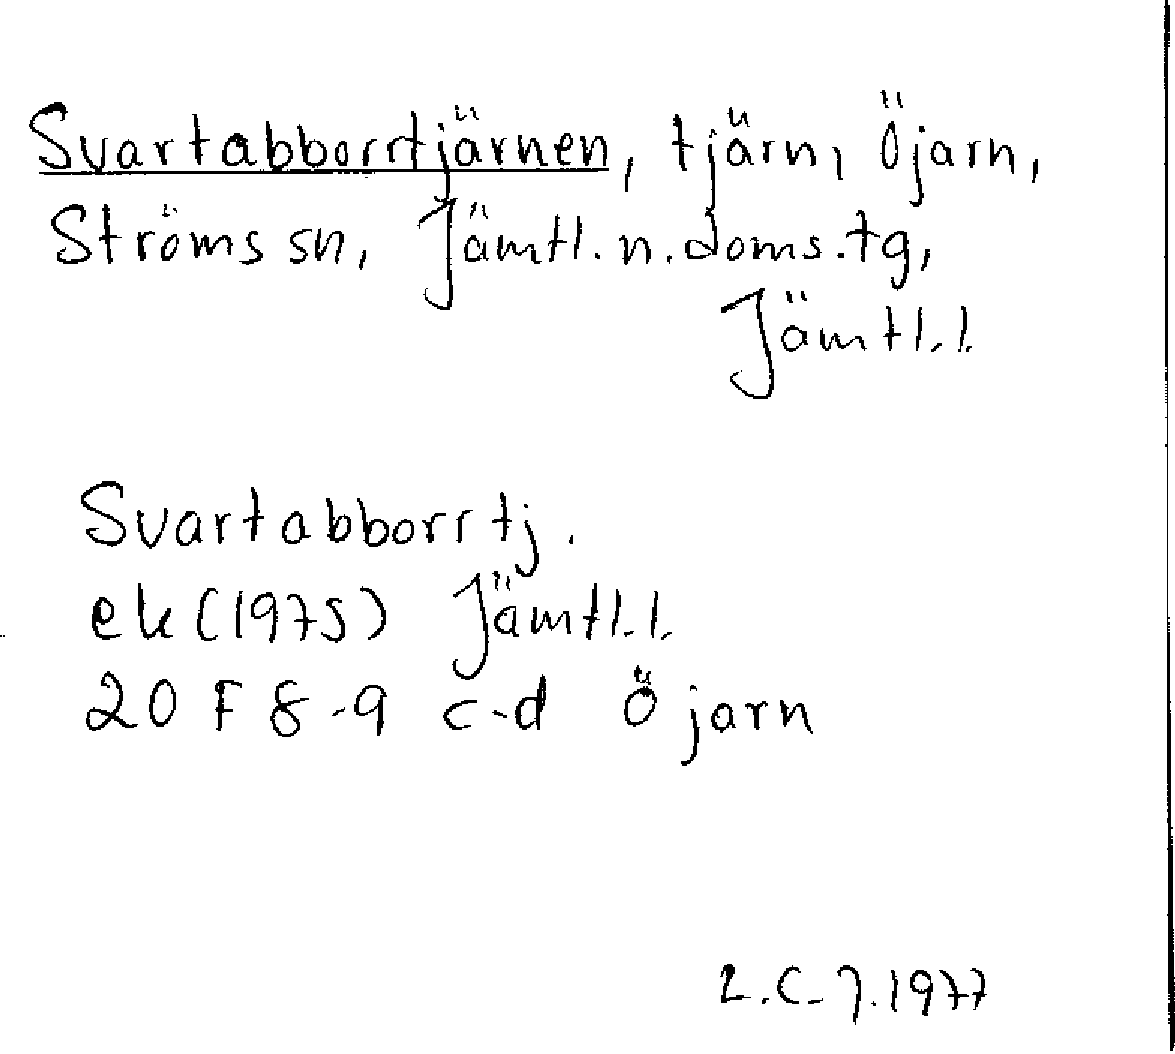 Svartabborrtjärnen, tjärn, Öjarn,
Ströms sn, Jämtl. n. doms. tg,
Jämtl. l.
Svartabborrtj.
ek (1975) Jämtl. l.
20 F 8-9 c-d Öjarn
1977